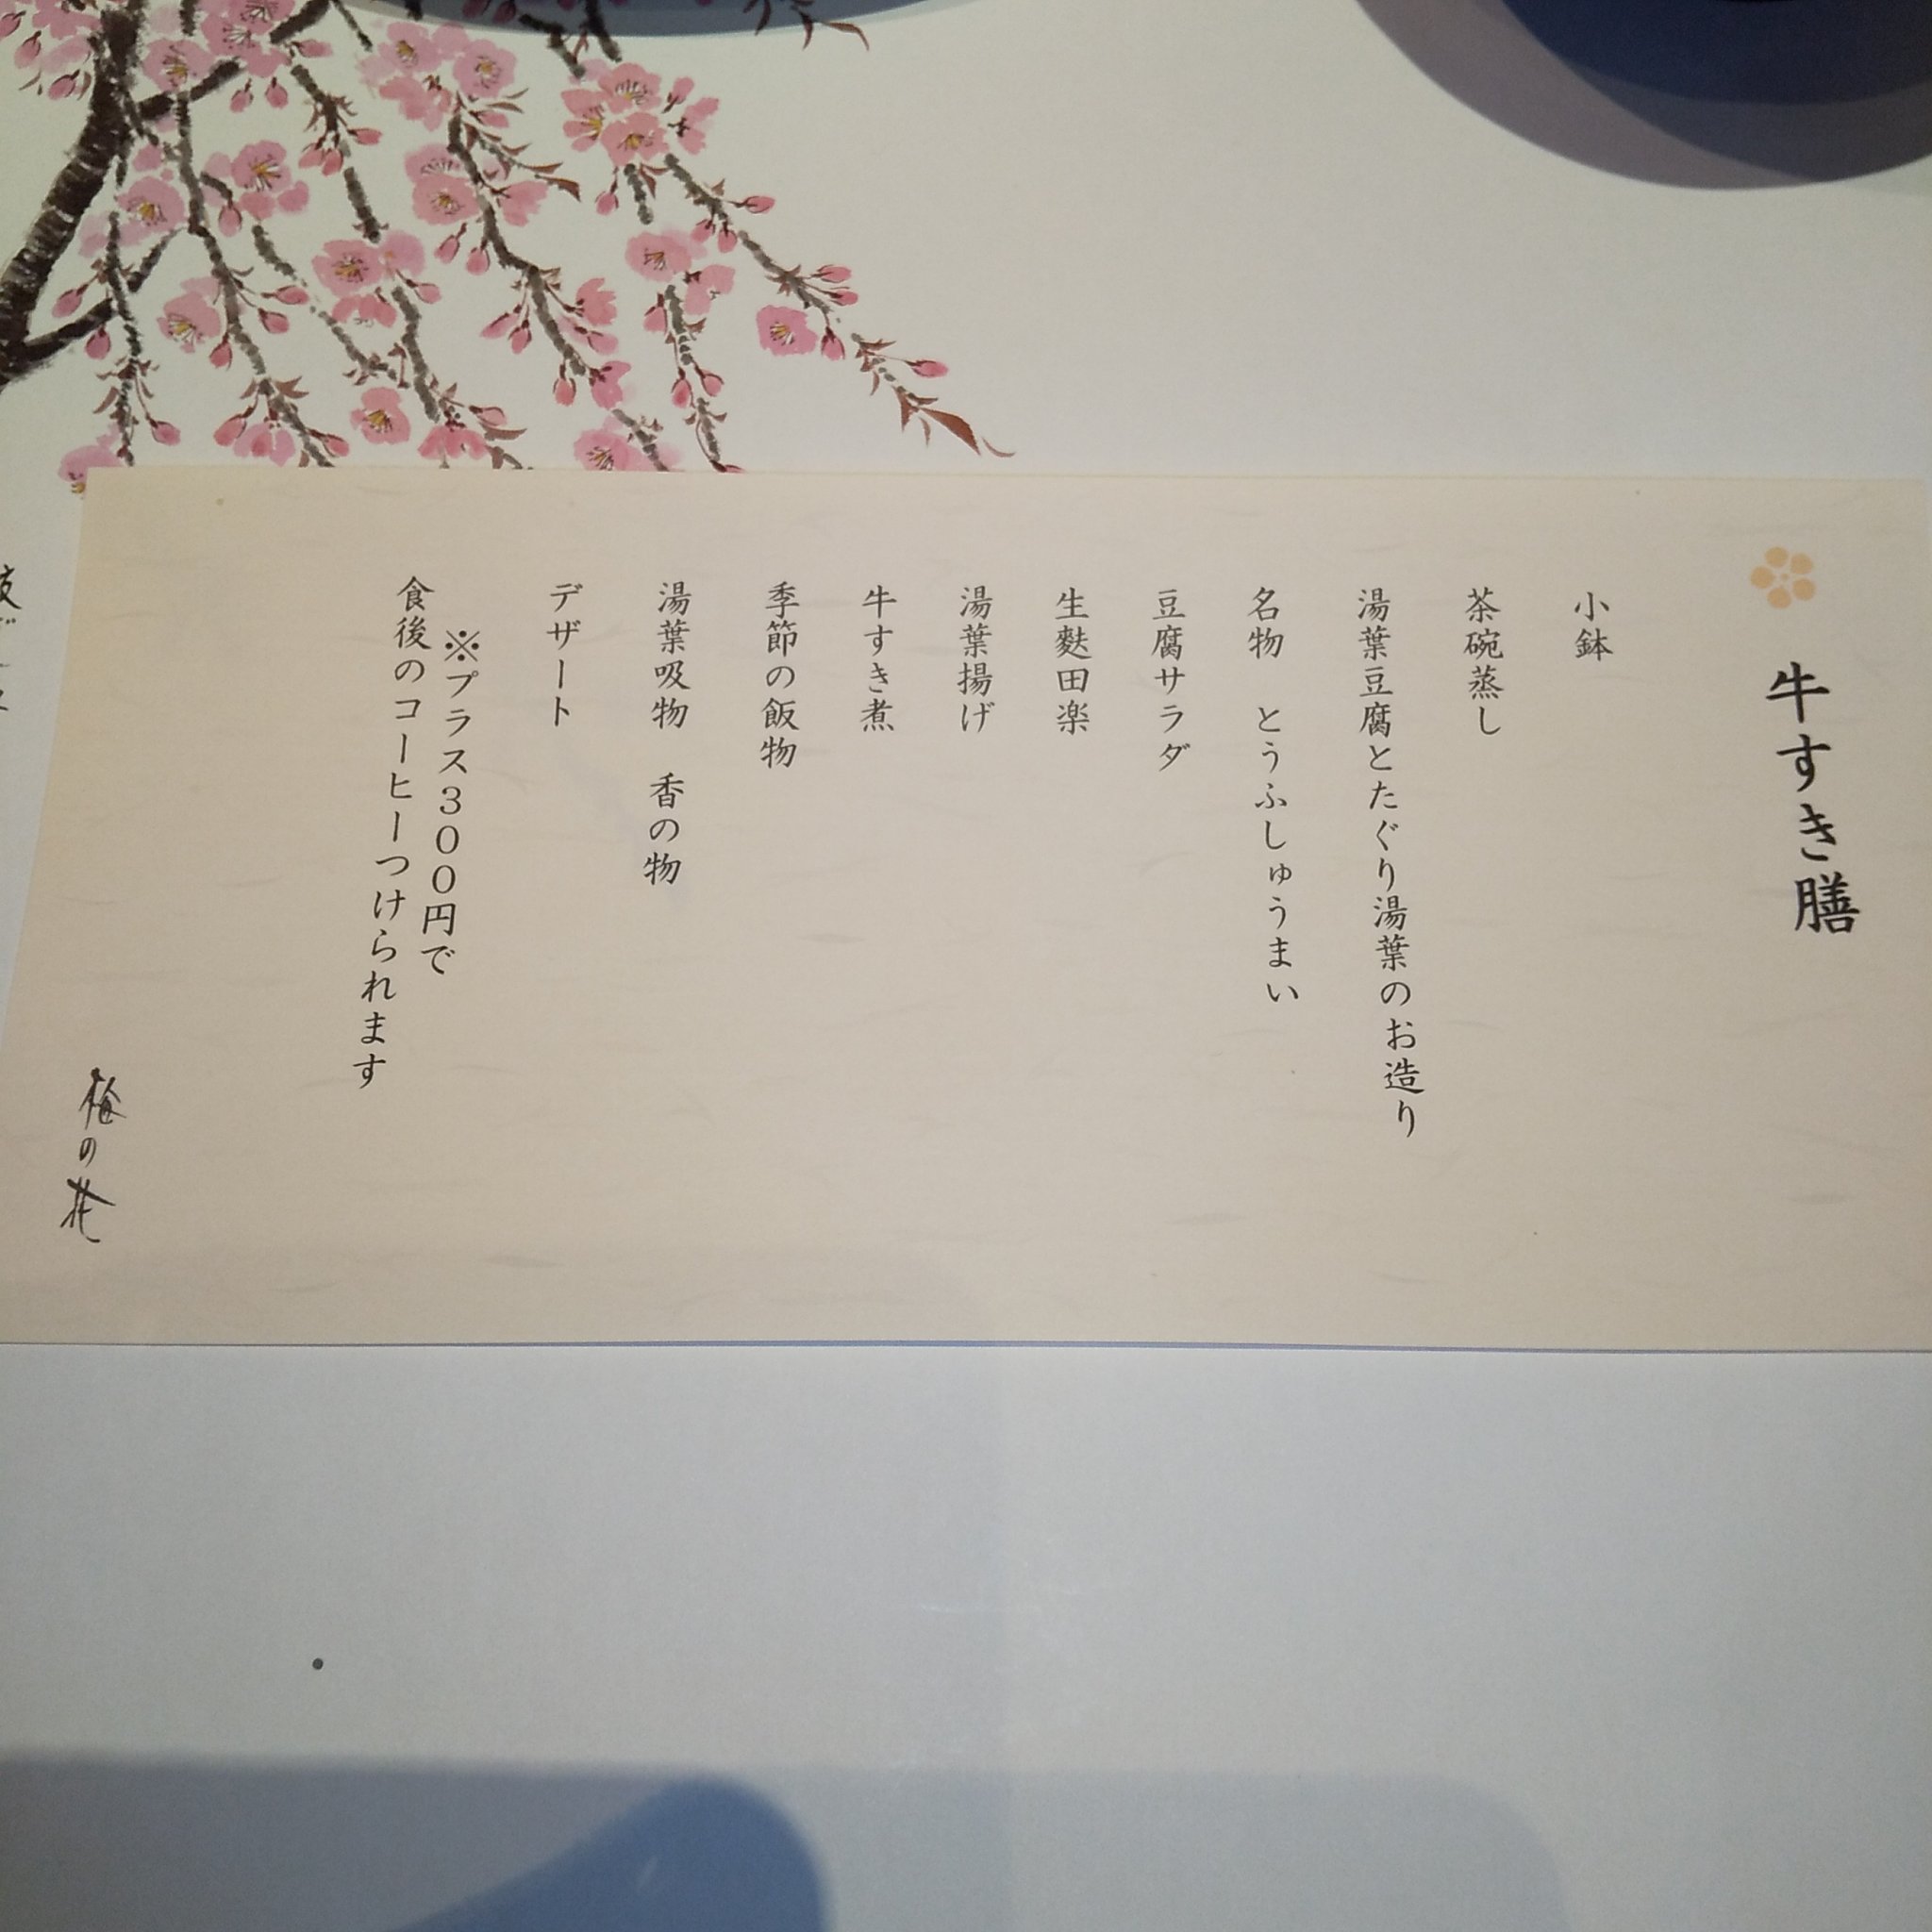 牛すき膳
小鉢
茶碗蒸し
湯葉豆腐とたぐり湯葉のお造り
名物　とうふしゅうまい
豆腐サラダ
生麩田楽
湯葉揚げ
牛すき煮
季節の飯物
湯葉吸物　香の物
デザート
※プラス300円で
食後のコーヒーつけられます
梅の花